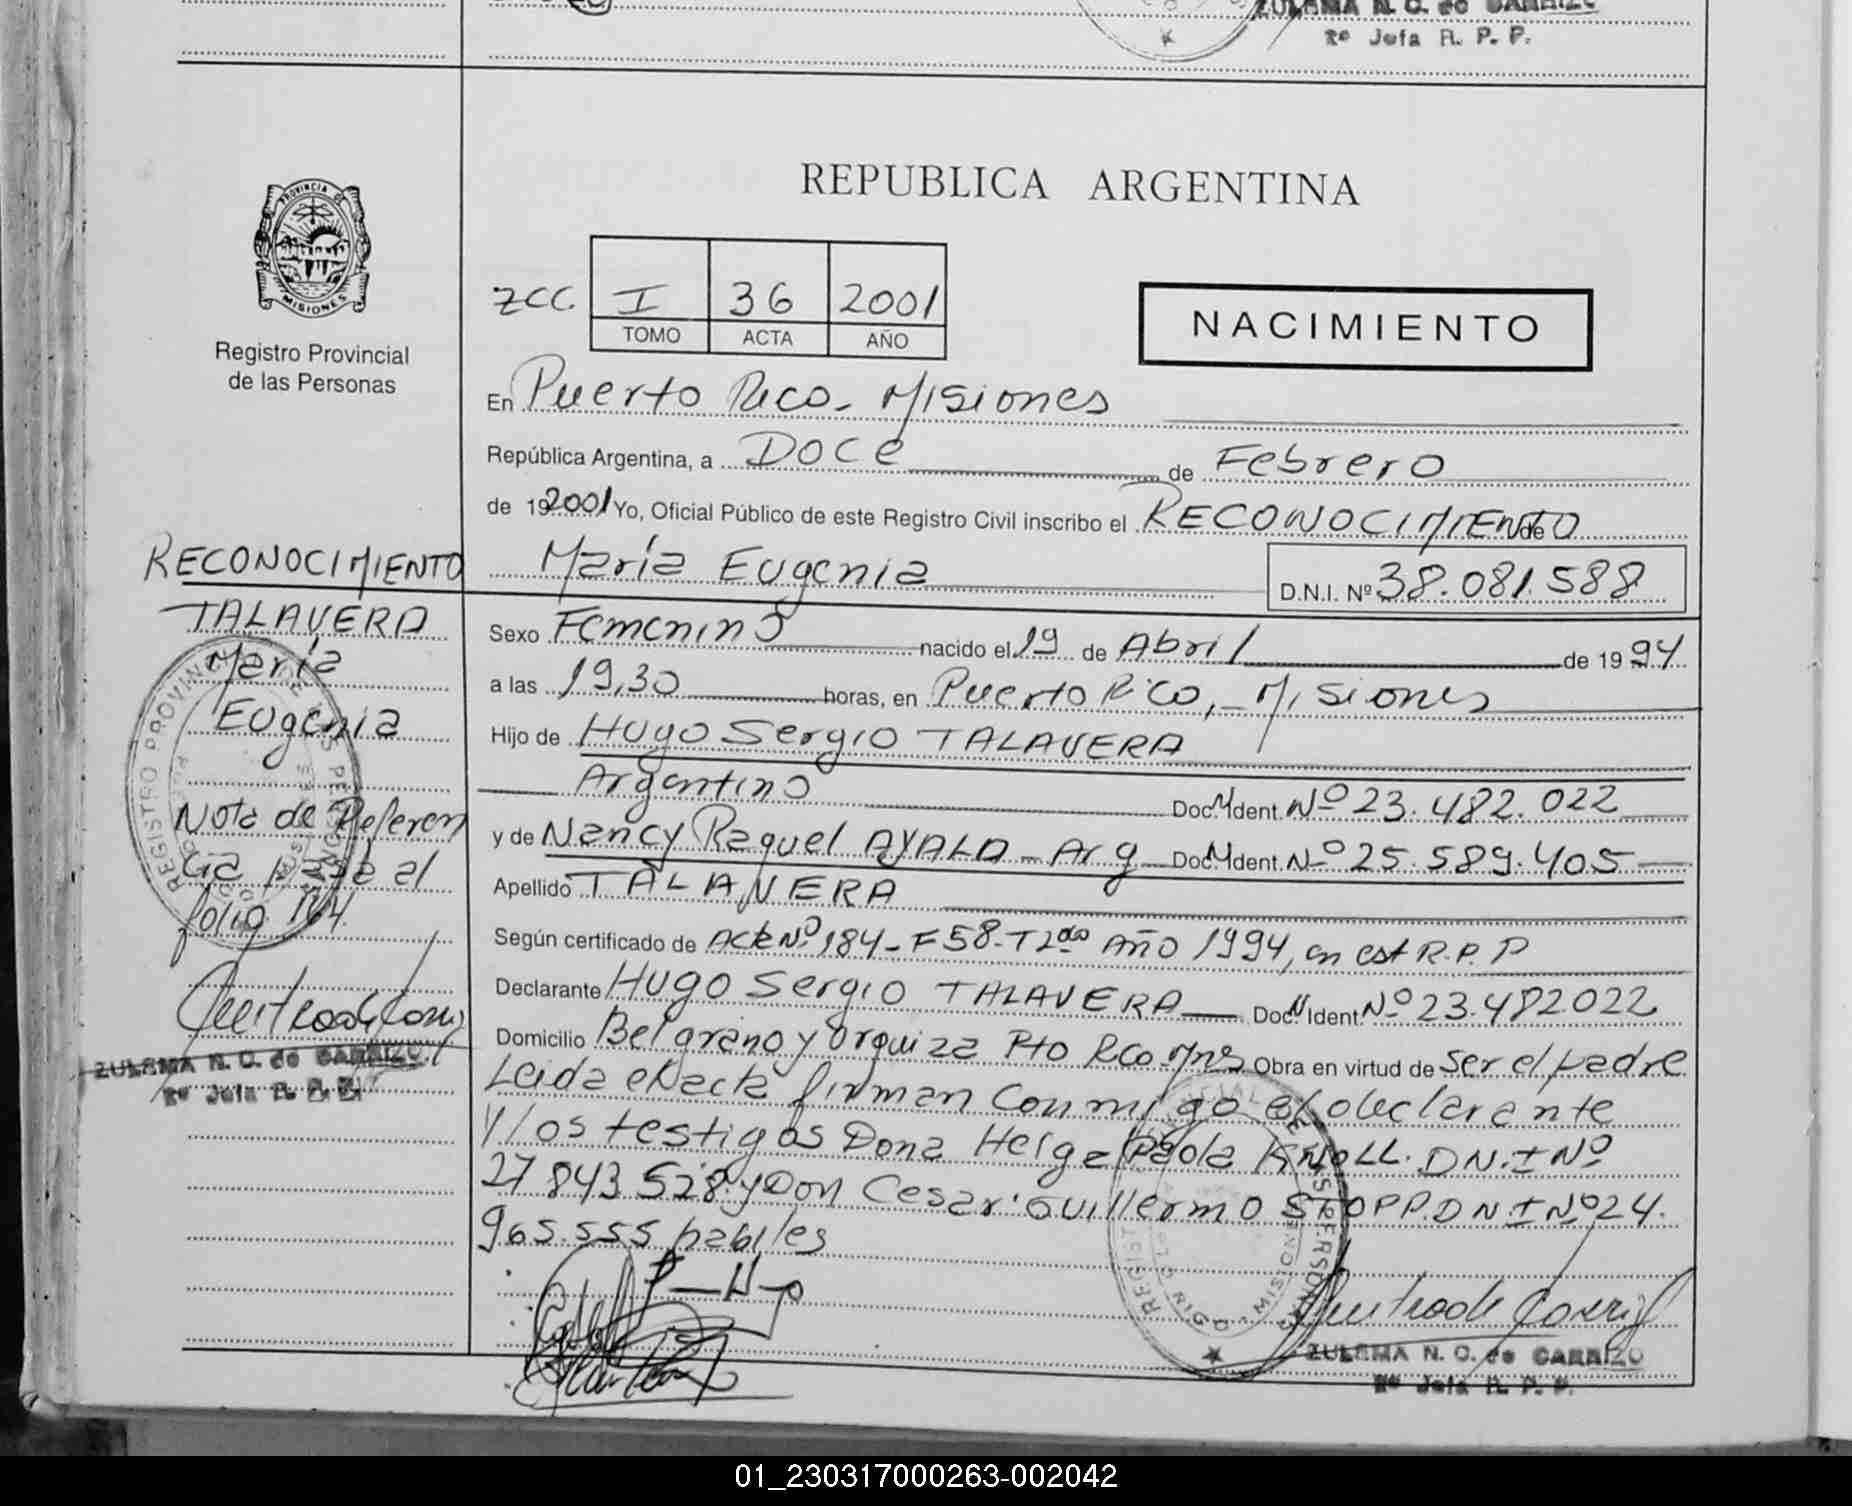 ZULEMA N. C. de CARRIZO
2º Jefa R. P. P.
PROVINCIA DE
MISIONES
Registro Provincial
de las Personas
REPUBLICA ARGENTINA
ZCC. I 36 2001
TOMO ACTA AÑO
NACIMIENTO
En Puerto Rico - Misiones
República Argentina, a Doce de Febrero
de 192001 Yo, Oficial Público de este Registro Civil inscribo el RECONOCIMIENTO de
María Eugenia D.N.I. Nº 38.081.588
Sexo Femenino nacido el 19 de Abril de 1994
a las 19,30 horas, en Puerto Rico, - Misiones
Hijo de Hugo Sergio TALAVERA
Argentino Doc. Ident. Nº 23.482.022
y de Nancy Raquel AYALA - Arg Doc. Ident. Nº 25.589.405
Apellido TALAVERA
Según certificado de Acta Nº 184 - F 58 - T 2do Año 1994, en est R.P.P
Declarante Hugo Sergio TALAVERA Doc. Ident. Nº 23.482022
Domicilio Belgrano y Urquiza Pto Rco Mnes Obra en virtud de Ser el padre
Leida el Acta firman conmigo el declarante
y los testigos Dona Helga Paola KNOLL. D.N.I Nº
27 843 528 y Don Cesar Guillermo STOPP. D N I Nº 24.
965.555 habiles
ZULEMA N. C. de CARRIZO
2º Jefa R. P. P.
RECONOCIMIENTO
TALAVERA
María
Eugenia
Nota de Referen
cia pase al
folio 184.
ZULEMA N. C. de CARRIZO
2º Jefa R. P. P.
01_230317000263-002042